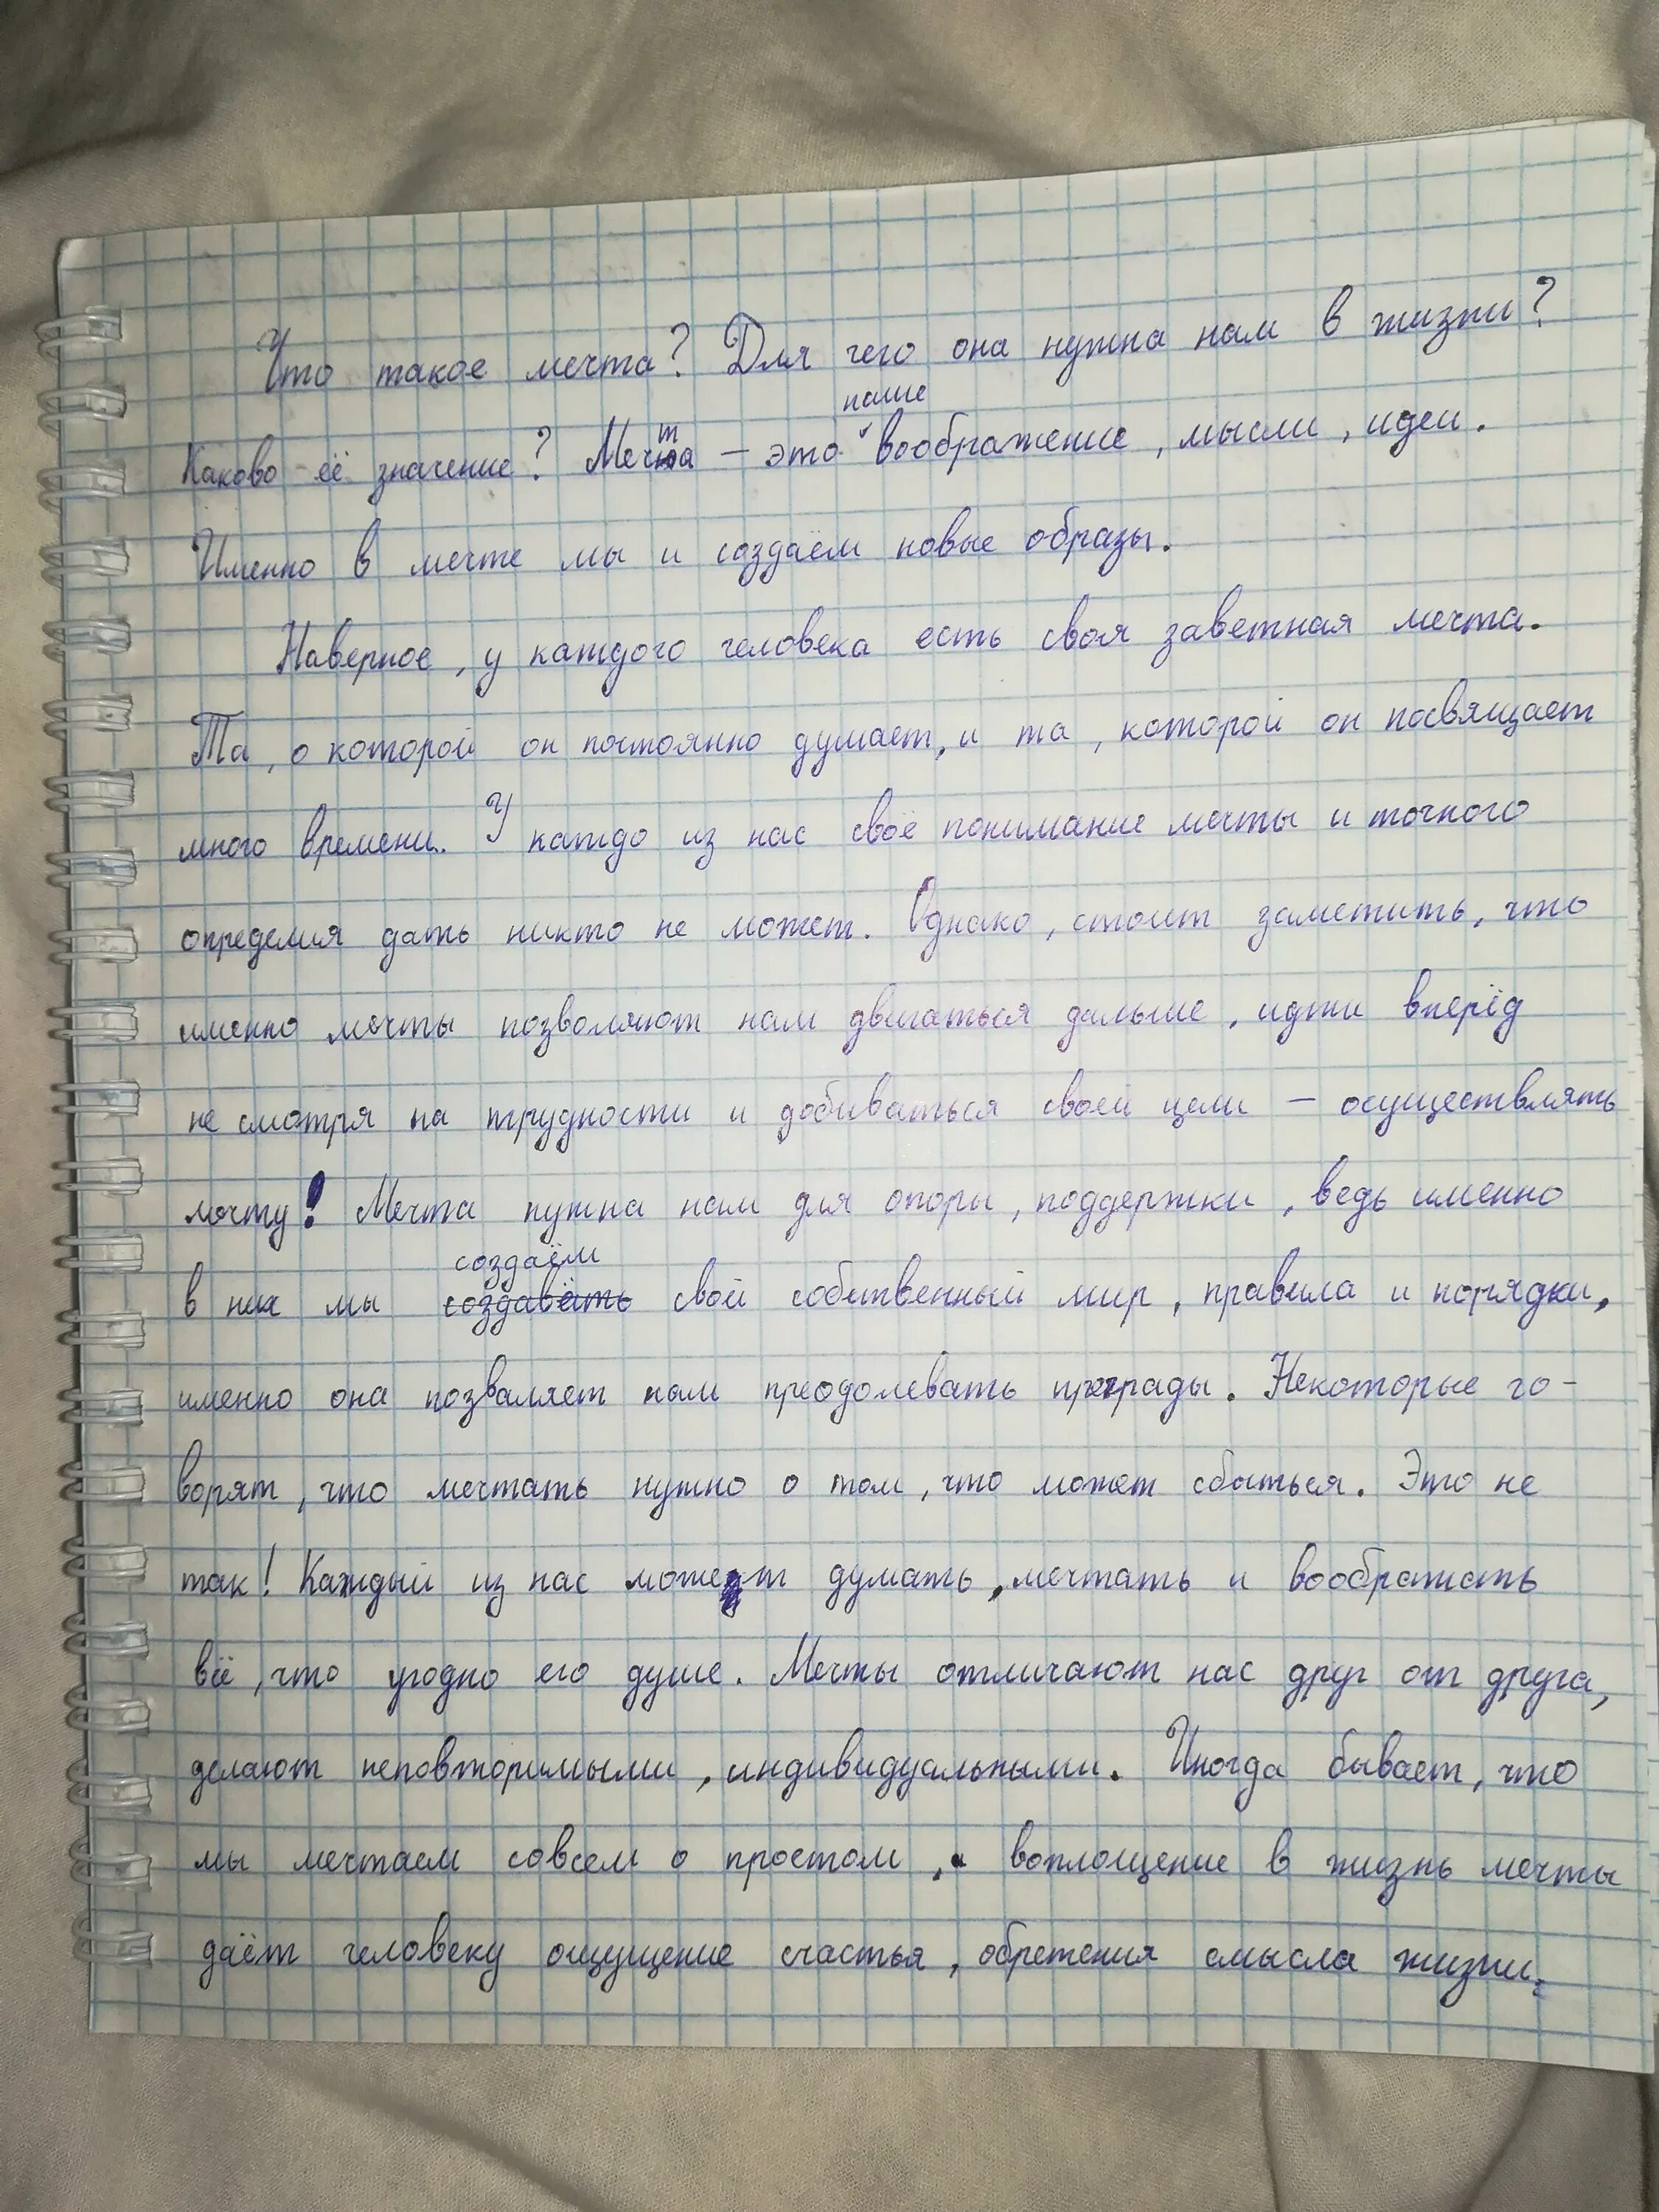 Что такое мечта? Для чего она нужна нам в жизни?
Каково её значение? Мечта – это наше воображение, мысли, идеи.
Именно в мечте мы и создаём новые образы.
Наверное, у каждого человека есть своя заветная мечта.
Та, о которой он постоянно думает, и та, которой он посвящает
много времени. У каждо из нас своё понимание мечты и точного
определия дать никто не может. Однако, стоит заметить, что
именно мечты позволяют нам двигаться дальше, идти вперёд
не смотря на трудности и добиваться своей цели – осуществлять
мечту! Мечта нужна нам для опоры, поддержки, ведь именно
в них мы создаём свой собственный мир, правила и порядки,
именно она позваляет нам преодолевать преграды. Некоторые го-
ворят, что мечтать нужно о том, что может сбыться. Это не
так! Каждый из нас может думать, мечтать и воображать
всё, что угодно его душе. Мечты отличают нас друг от друга,
делают неповторимыми, индивидуальными. Иногда бывает, что
мы мечтаем совсем о простом, воплощение в жизнь мечты
даёт человеку ощущение счастья, обретения смысла жизни.